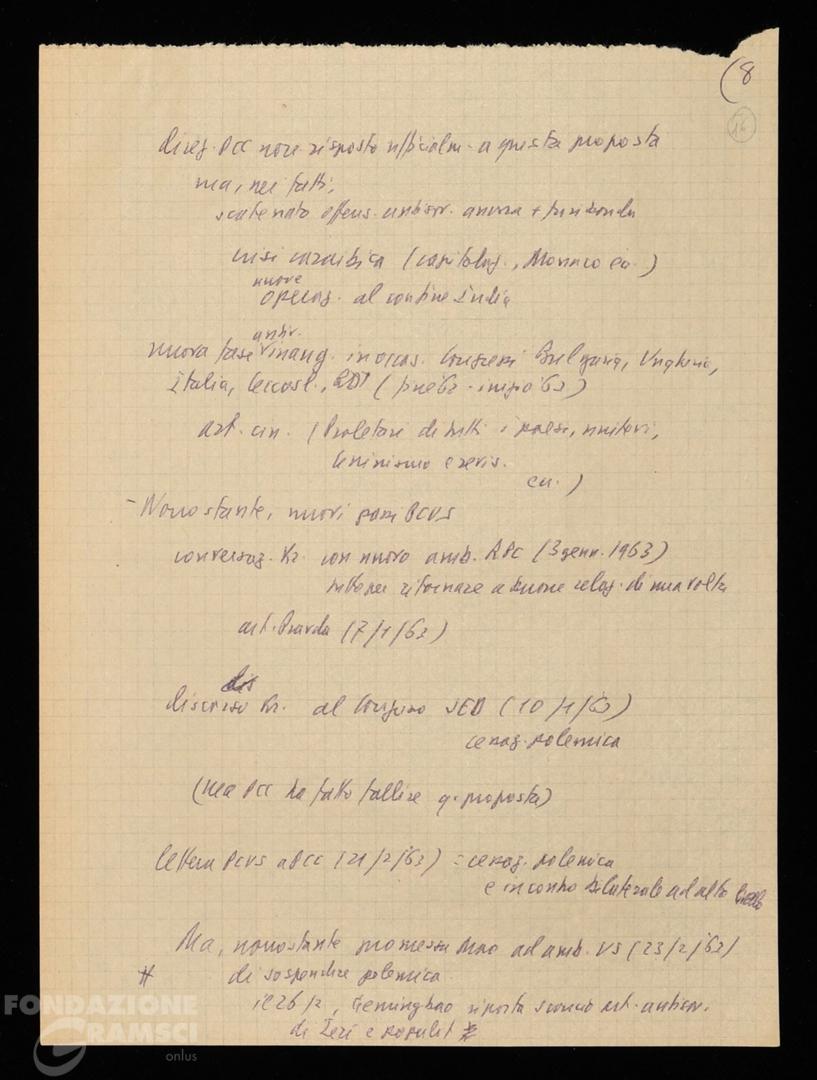 (8
16
direz. PCC non risposto ufficialm. a questa proposta
ma, nei fatti,
scatenato offens. antisov. ancora + furibonda
crisi caraibica (capitolaz., Monaco ecc.)
nuove
operaz. al confine India
antis.
nuova fase inaug. in occas. Congressi Bulgaria, Ungheria,
Italia, Cecosl., RDT (fine 62 - inizio 63)
art. cin. (Proletari di tutti i paesi, unitevi,
leninismo e revis.
ecc.)
- Nonostante, nuovi passi PCUS
conversaz. Kr. con nuovo amb. RPC (3 genn. 1963)
tutto per ritornare a buone relaz. di una volta
art. Pravda (7/1/63)
discorso Kr. al Congresso SED (10/1/63)
cessaz. polemica
(ma PCC ha fatto fallire q. proposta)
lettera PCUS a PCC (21/2/63) = cessaz. polemica
e incontro bilaterale ad alto livello
Ma, nonostante promessa Mao ad amb. US (23/2/63)
# di sospendere polemica
il 26/2, Geminghao riporta sconcio art. antisov.
di Zeri e popullit #
FONDAZIONE
GRAMSCI
onlus